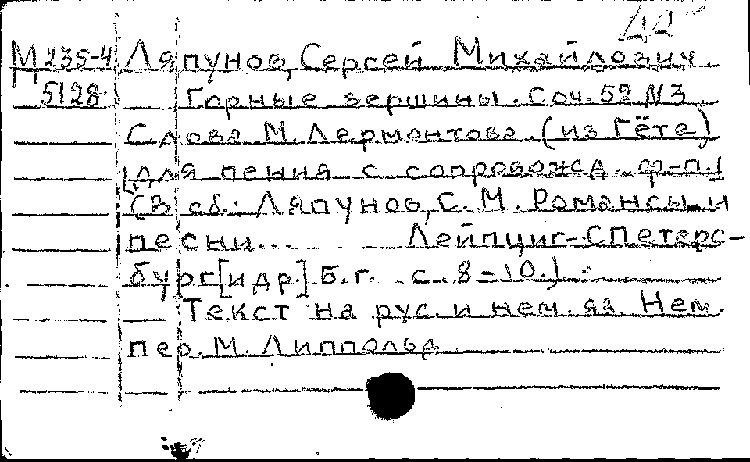 М 235-4 Ляпунов, Сергей Михайлович.
5128 Горные вершины. Соч. 52 №3
Слова М. Лермонтова. (из Гёте)
[Для пения с сопровожд. ф-п.]
(В сб.: Ляпунов, С. М. Романсы и
песни... Лейпциг-СПетерс-
бург [и др] Б.г. с. 8-10.)
Текст на рус. и нем. яз. Нем.
пер. М. Липпольд